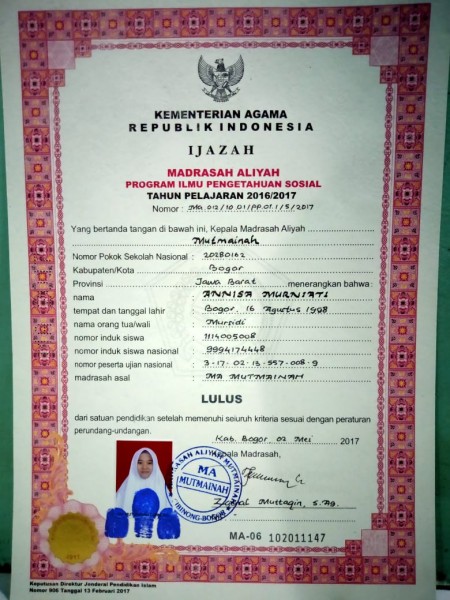 KEMENTERIAN AGAMA
REPUBLIK INDONESIA
IJAZAH
MADRASAH ALIYAH
PROGRAM ILMU PENGETAHUAN SOSIAL
TAHUN PELAJARAN 2016/2017
Nomor : MA.012/10.01/PP.01.1/5/2017
Yang bertanda tangan di bawah ini, Kepala Madrasah Aliyah
Mutmainah
Nomor Pokok Sekolah Nasional : 20280162
Kabupaten/Kota : Bogor
Provinsi : Jawa Barat menerangkan bahwa :
nama : ANNISA MURNIATI
tempat dan tanggal lahir : Bogor, 16 Agustus 1998
nama orang tua/wali : Murpidi
nomor induk siswa : 1114005008
nomor induk siswa nasional : 9994174448
nomor peserta ujian nasional : 3-17-02-13-557-008-9
madrasah asal : MA MUTMAINAH
LULUS
dari satuan pendidikan setelah memenuhi seluruh kriteria sesuai dengan peraturan
perundang-undangan.
Kab. Bogor 02 Mei 2017
Kepala Madrasah,
MADRASAH ALIYAH MUTMAINAH
MA
MUTMAINAH
CIBINONG-BOGOR
Muttaqin, S.Ag.
MA-06 102011147
2017
Keputusan Direktur Jenderal Pendidikan Islam
Nomor 906 Tanggal 13 Februari 2017